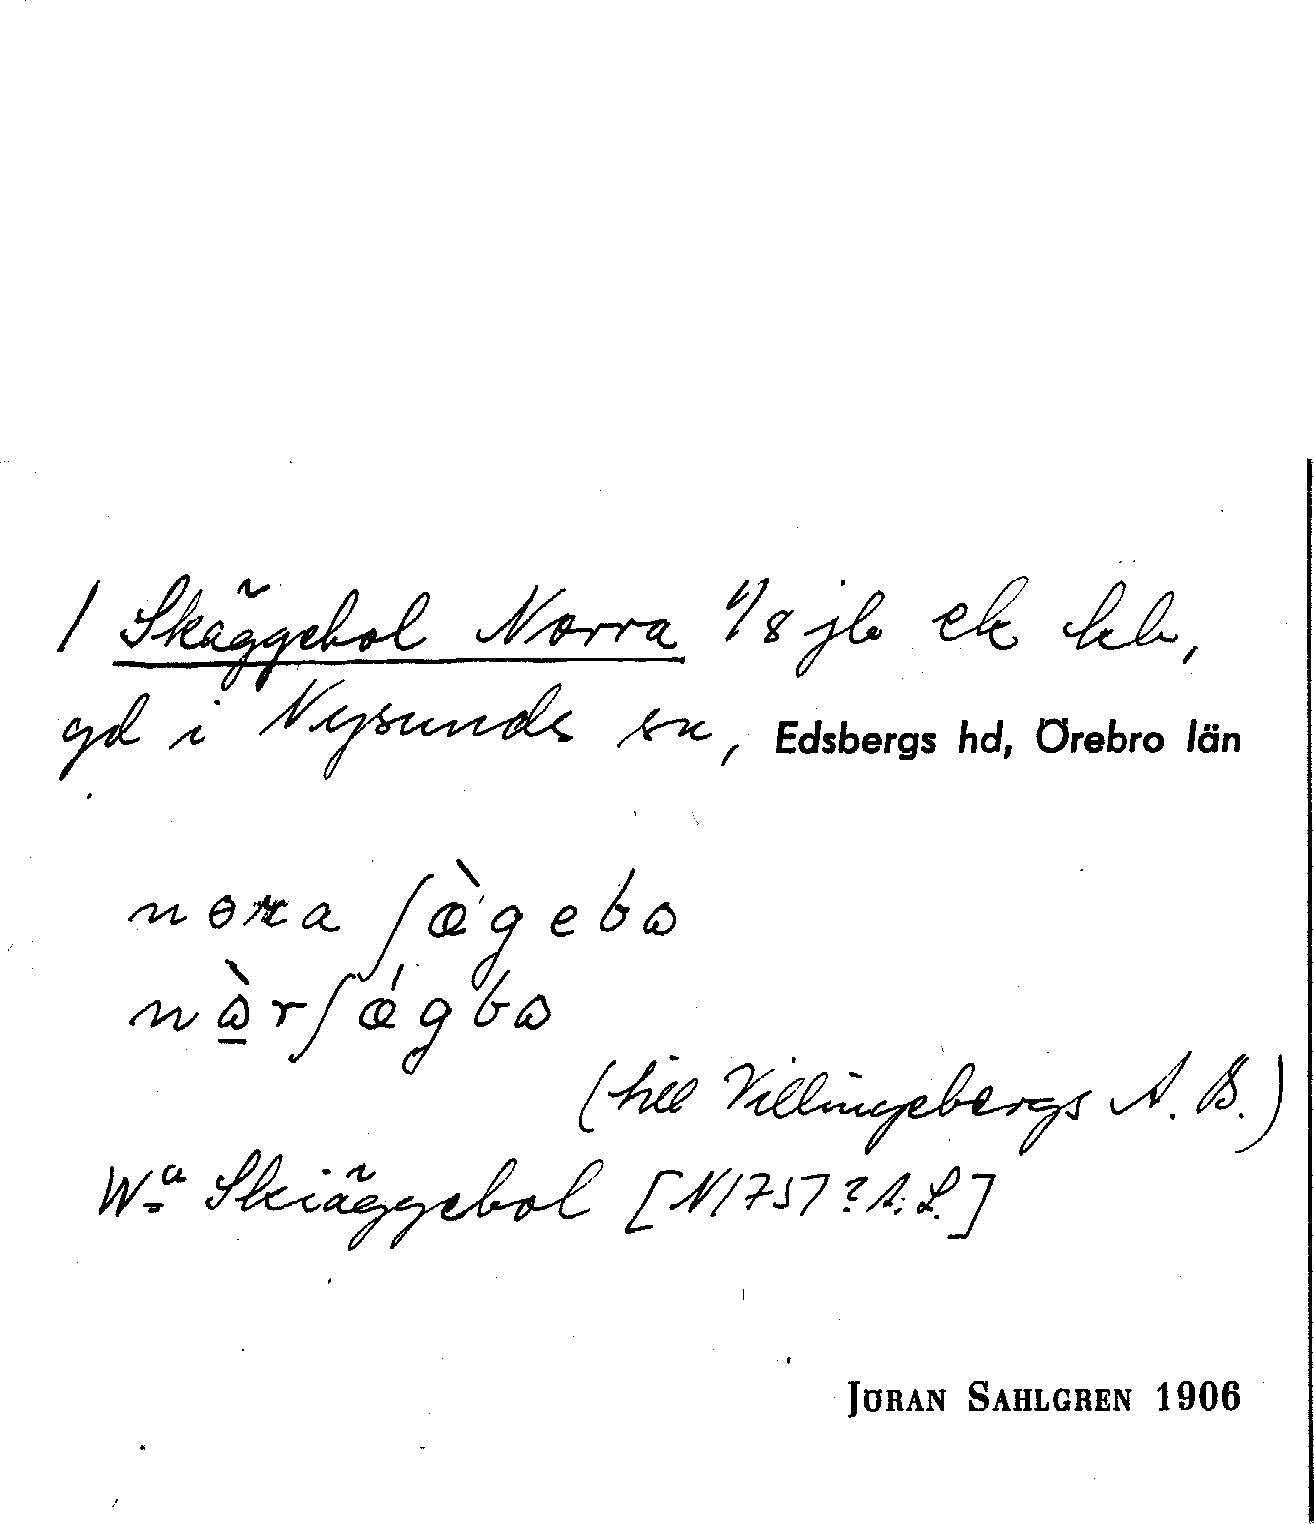 / Skäggebol Norra 1/8 jb ek kb,
gd i Nysunds sn, Edsbergs hd, Örebro län
ʃæ̀gebɷ
nɷ̱̀rʃǽgbɷ
(till Villingsbergs A. B.)
Wa Skiäggebol [N1757? A. L.]
JÖRAN SAHLGREN 1906